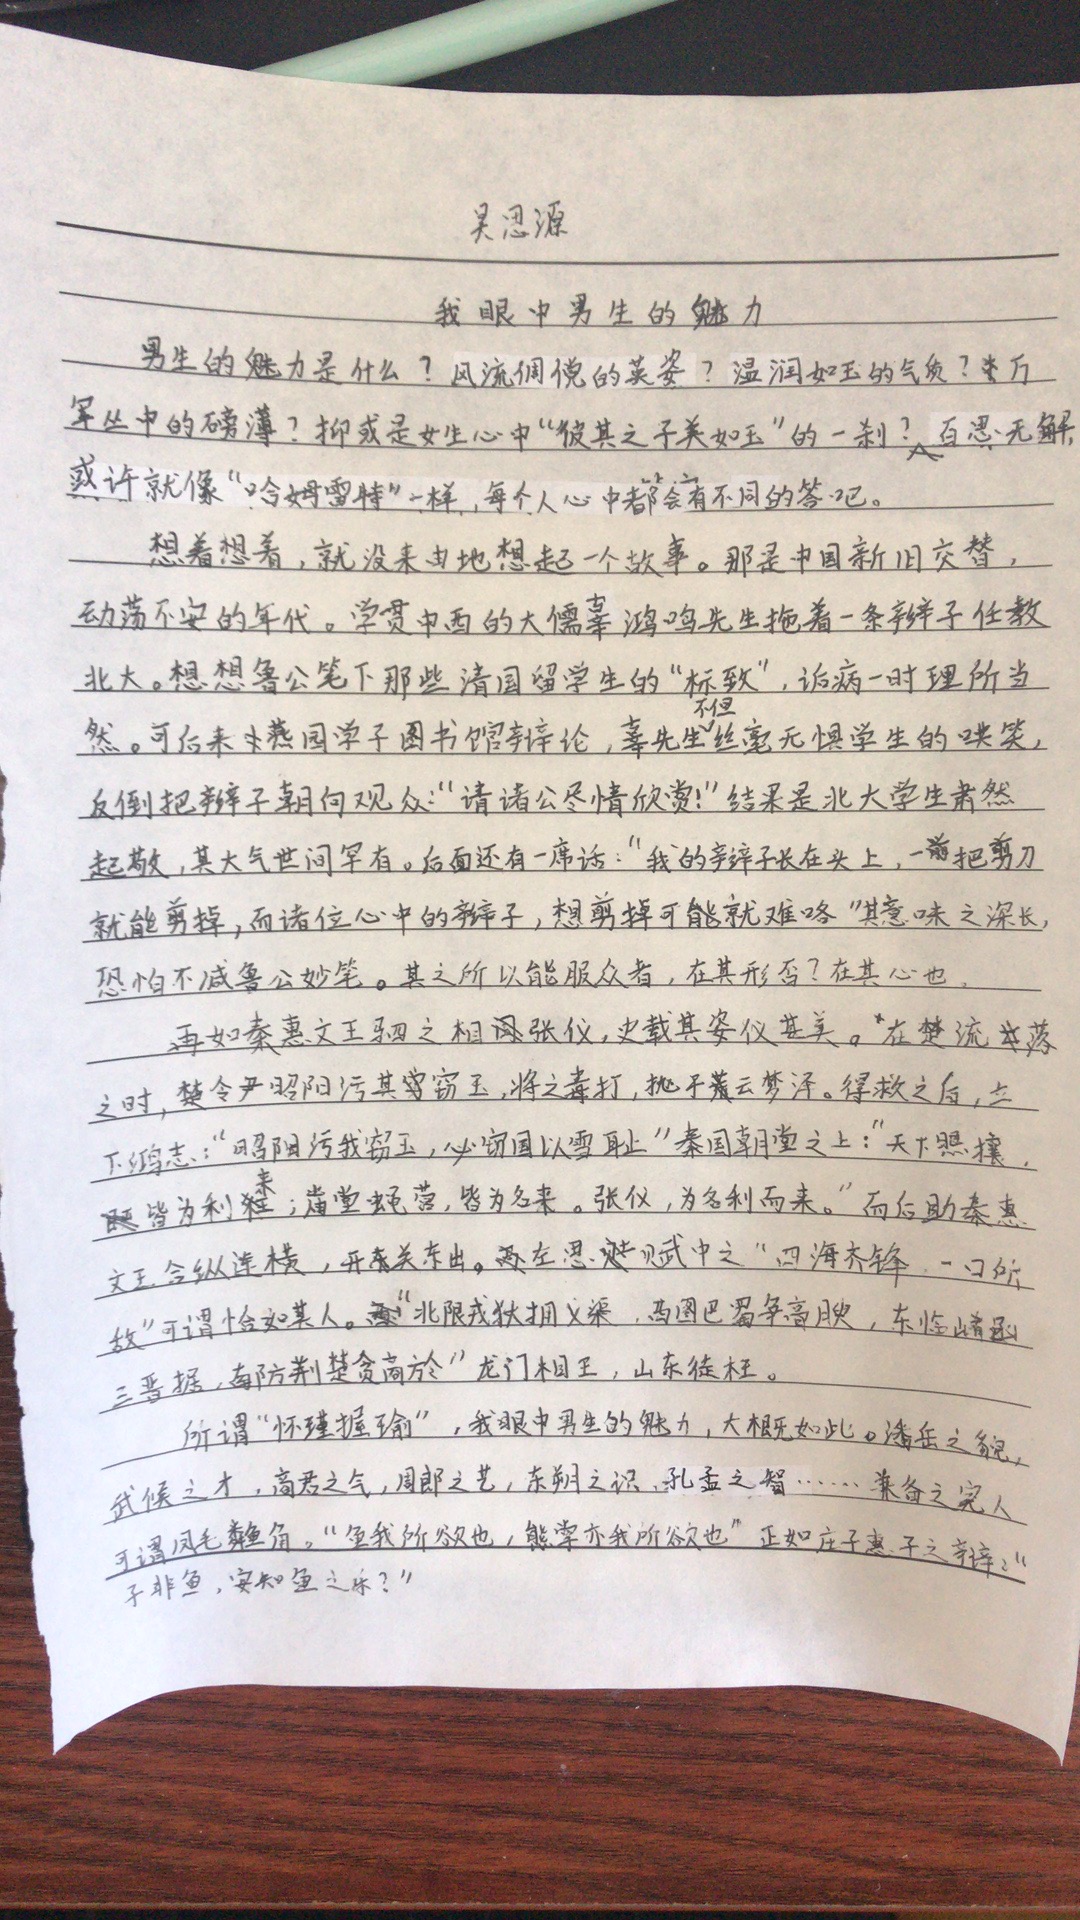 吴思源
我眼中男生的魅力
男生的魅力是什么？风流倜傥的英姿？温润如玉的气质？万
军丛中的磅薄？抑或是女生心中“彼其之子美如玉”的一刹？百思无解，
或许就像“哈姆雷特”一样，每个人心中都会有不同的答吧。
想着想着，就没来由地想起一个故事。那是中国新旧交替，
动荡不安的年代。学贯中西的大儒辜鸿鸣先生拖着一条辫子任教
北大。想想鲁公笔下那些清国留学生的“标致”，诟病一时理所当
然。可后来燕园学子图书馆辩论，辜先生不但丝毫无惧学生的哄笑，
反倒把辫子朝向观众：“请诸公尽情欣赏！”结果是北大学生肃然
起敬，其大气世间罕有。后面还有一席话：“我的辫子长在头上，一把剪刀
就能剪掉，而诸位心中的辫子，想剪掉可能就难咯”其意味之深长，
恐怕不减鲁公妙笔。其之所以能服众者，在其形否？在其心也。
再如秦惠文王驷之相张仪，史载其姿仪甚美。在楚流落
之时，楚令尹昭阳污其窃玉，将之毒打，抛于云梦泽。得救之后，立
下鸿志：“昭阳污我窃玉，必窃国以雪耻”秦国朝堂之上：“天下熙攘，
皆为利来；营，皆为名来。张仪，为名利而来。”而后助秦惠
文王合纵连横，开关东出。左思赋中之“四海齐锋，一口所
敌”可谓恰如其人。“北限戎狄拥义渠，西图巴蜀争高腴，东临崤函
三晋据，南防荆楚贪商於”龙门相王，山东徒枉。
所谓“怀瑾握瑜”，我眼中男生的魅力，大概无如此。潘岳之貌，
武候之才，高君之气，周郎之艺，东朔之识，孔孟之智……兼备之完人
可谓凤毛麟角。“鱼我所欲也，熊掌亦我所欲也”正如庄子惠子之辩：“
子非鱼，安知鱼之乐？”